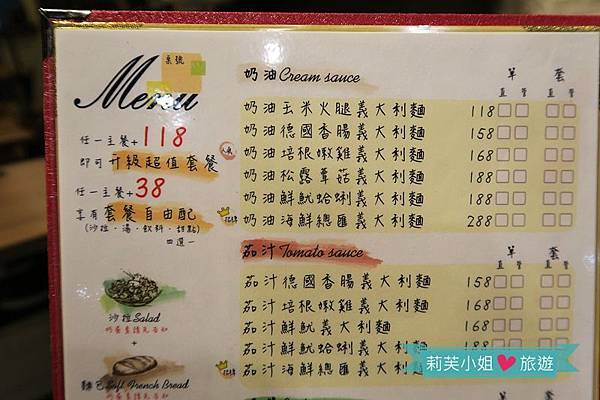 桌號
Menu
任一主餐+118
即可升級超值套餐
任一主餐+38
享有套餐自由配
(沙拉.湯.飲料.甜點)
四選一
沙拉Salad
+
Soft French Bread
奶油Cream sauce
單 套
直 管 直 管
奶油玉米火腿義大利麵 118
奶油德國香腸義大利麵 158
人氣 奶油培根嫩雞義大利麵 168
奶油松露蕈菇義大利麵 188
奶油鮮魷蛤蜊義大利麵 188
奶油海鮮總匯義大利麵 288
茄汁Tomato sauce
單 套
直 管 直 管
茄汁德國香腸義大利麵 158
茄汁培根嫩雞義大利麵 168
茄汁鮮魷義大利麵 168
茄汁鮮魷蛤蜊義大利麵 188
茄汁海鮮總匯義大利麵
莉芙小姐♥旅遊